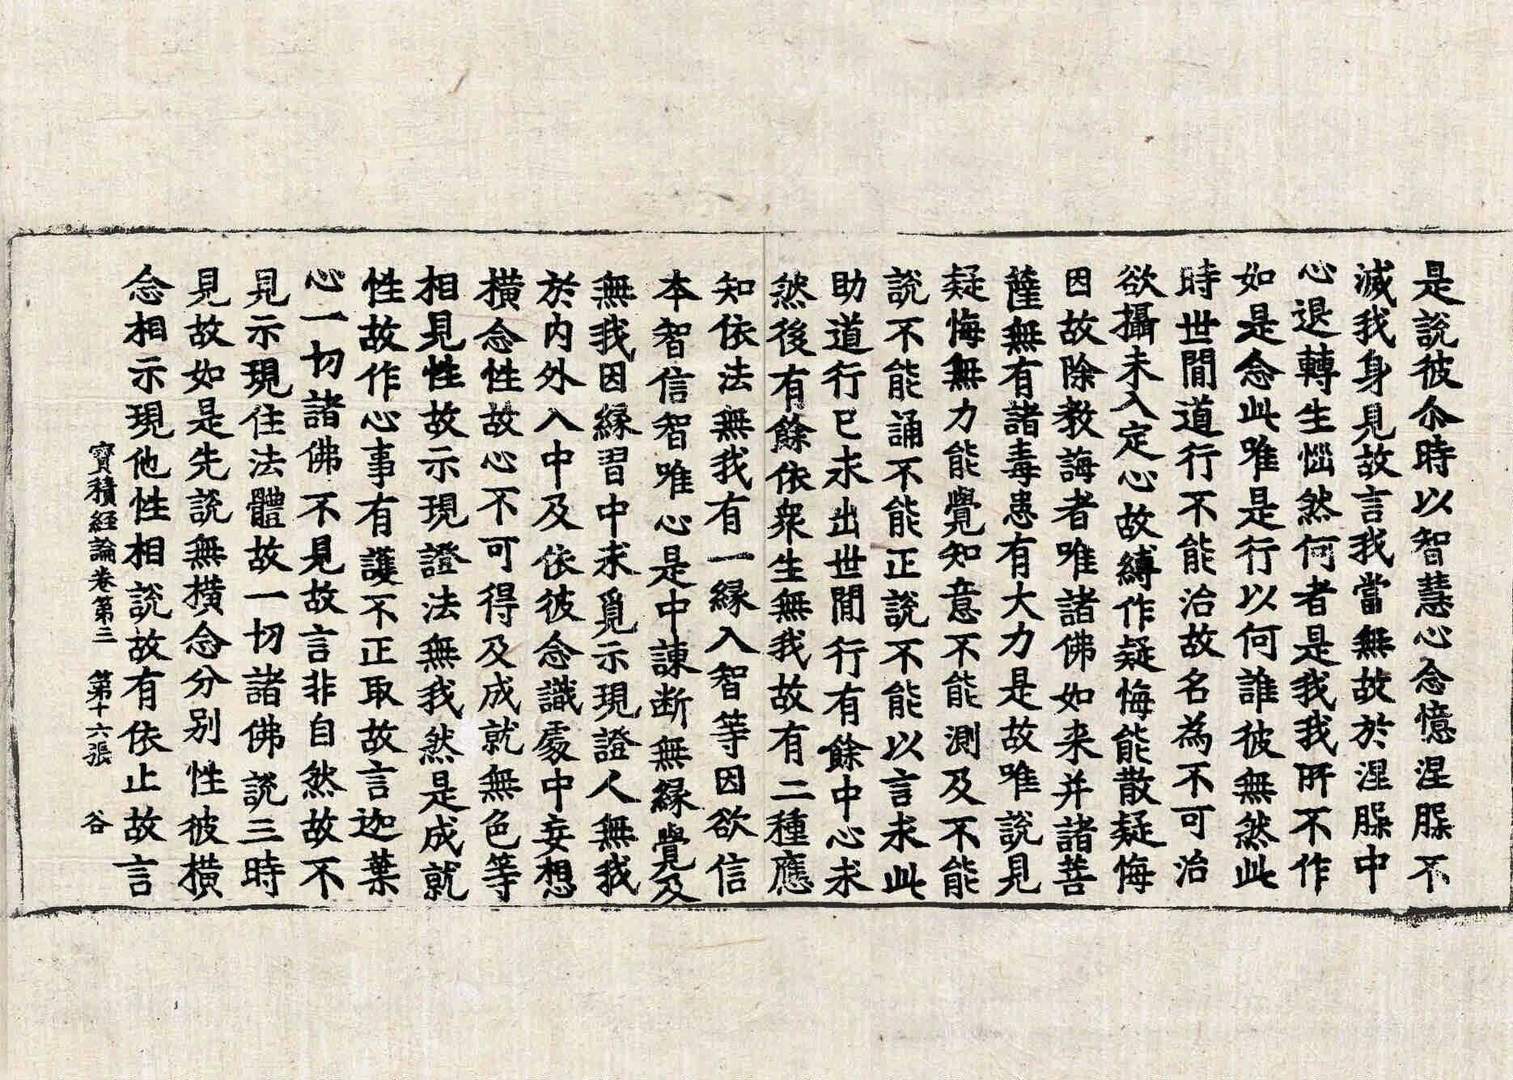 是說彼尒時以智慧心念憶涅槃不
滅我身見故言我當無故於涅槃中
心退轉生惱然何者是我我所不作
如是念此唯是行以何誰彼無然此
時世間道行不能治故名為不可治
欲攝未入定心故縛作疑悔能散疑悔
因故除教誨者唯諸佛如来并諸菩
薩無有諸毒患有大力是故唯說見
疑悔無力能覺知意不能測及不能
說不能誦不能正說不能以言求此
助道行已求出世間行有餘中心求
然後有餘依衆生無我故有二種應
知依法無我有一縁入智等因欲信
本智信智唯心是中諫断無縁覺及
無我因縁習中求覓示現證人無我
於內外入中及依彼念識處中妄想
橫念性故心不可得及成就無色等
相見性故示現證法無我然是成就
性故作心事有護不正取故言迦葉
心一切諸佛不見故言非自然故不
見示現住法體故一切諸佛說三時
見故如是先說無橫念分别性彼橫
念相示現他性相說故有依止故言
寶積經論卷第三　第十六張　谷